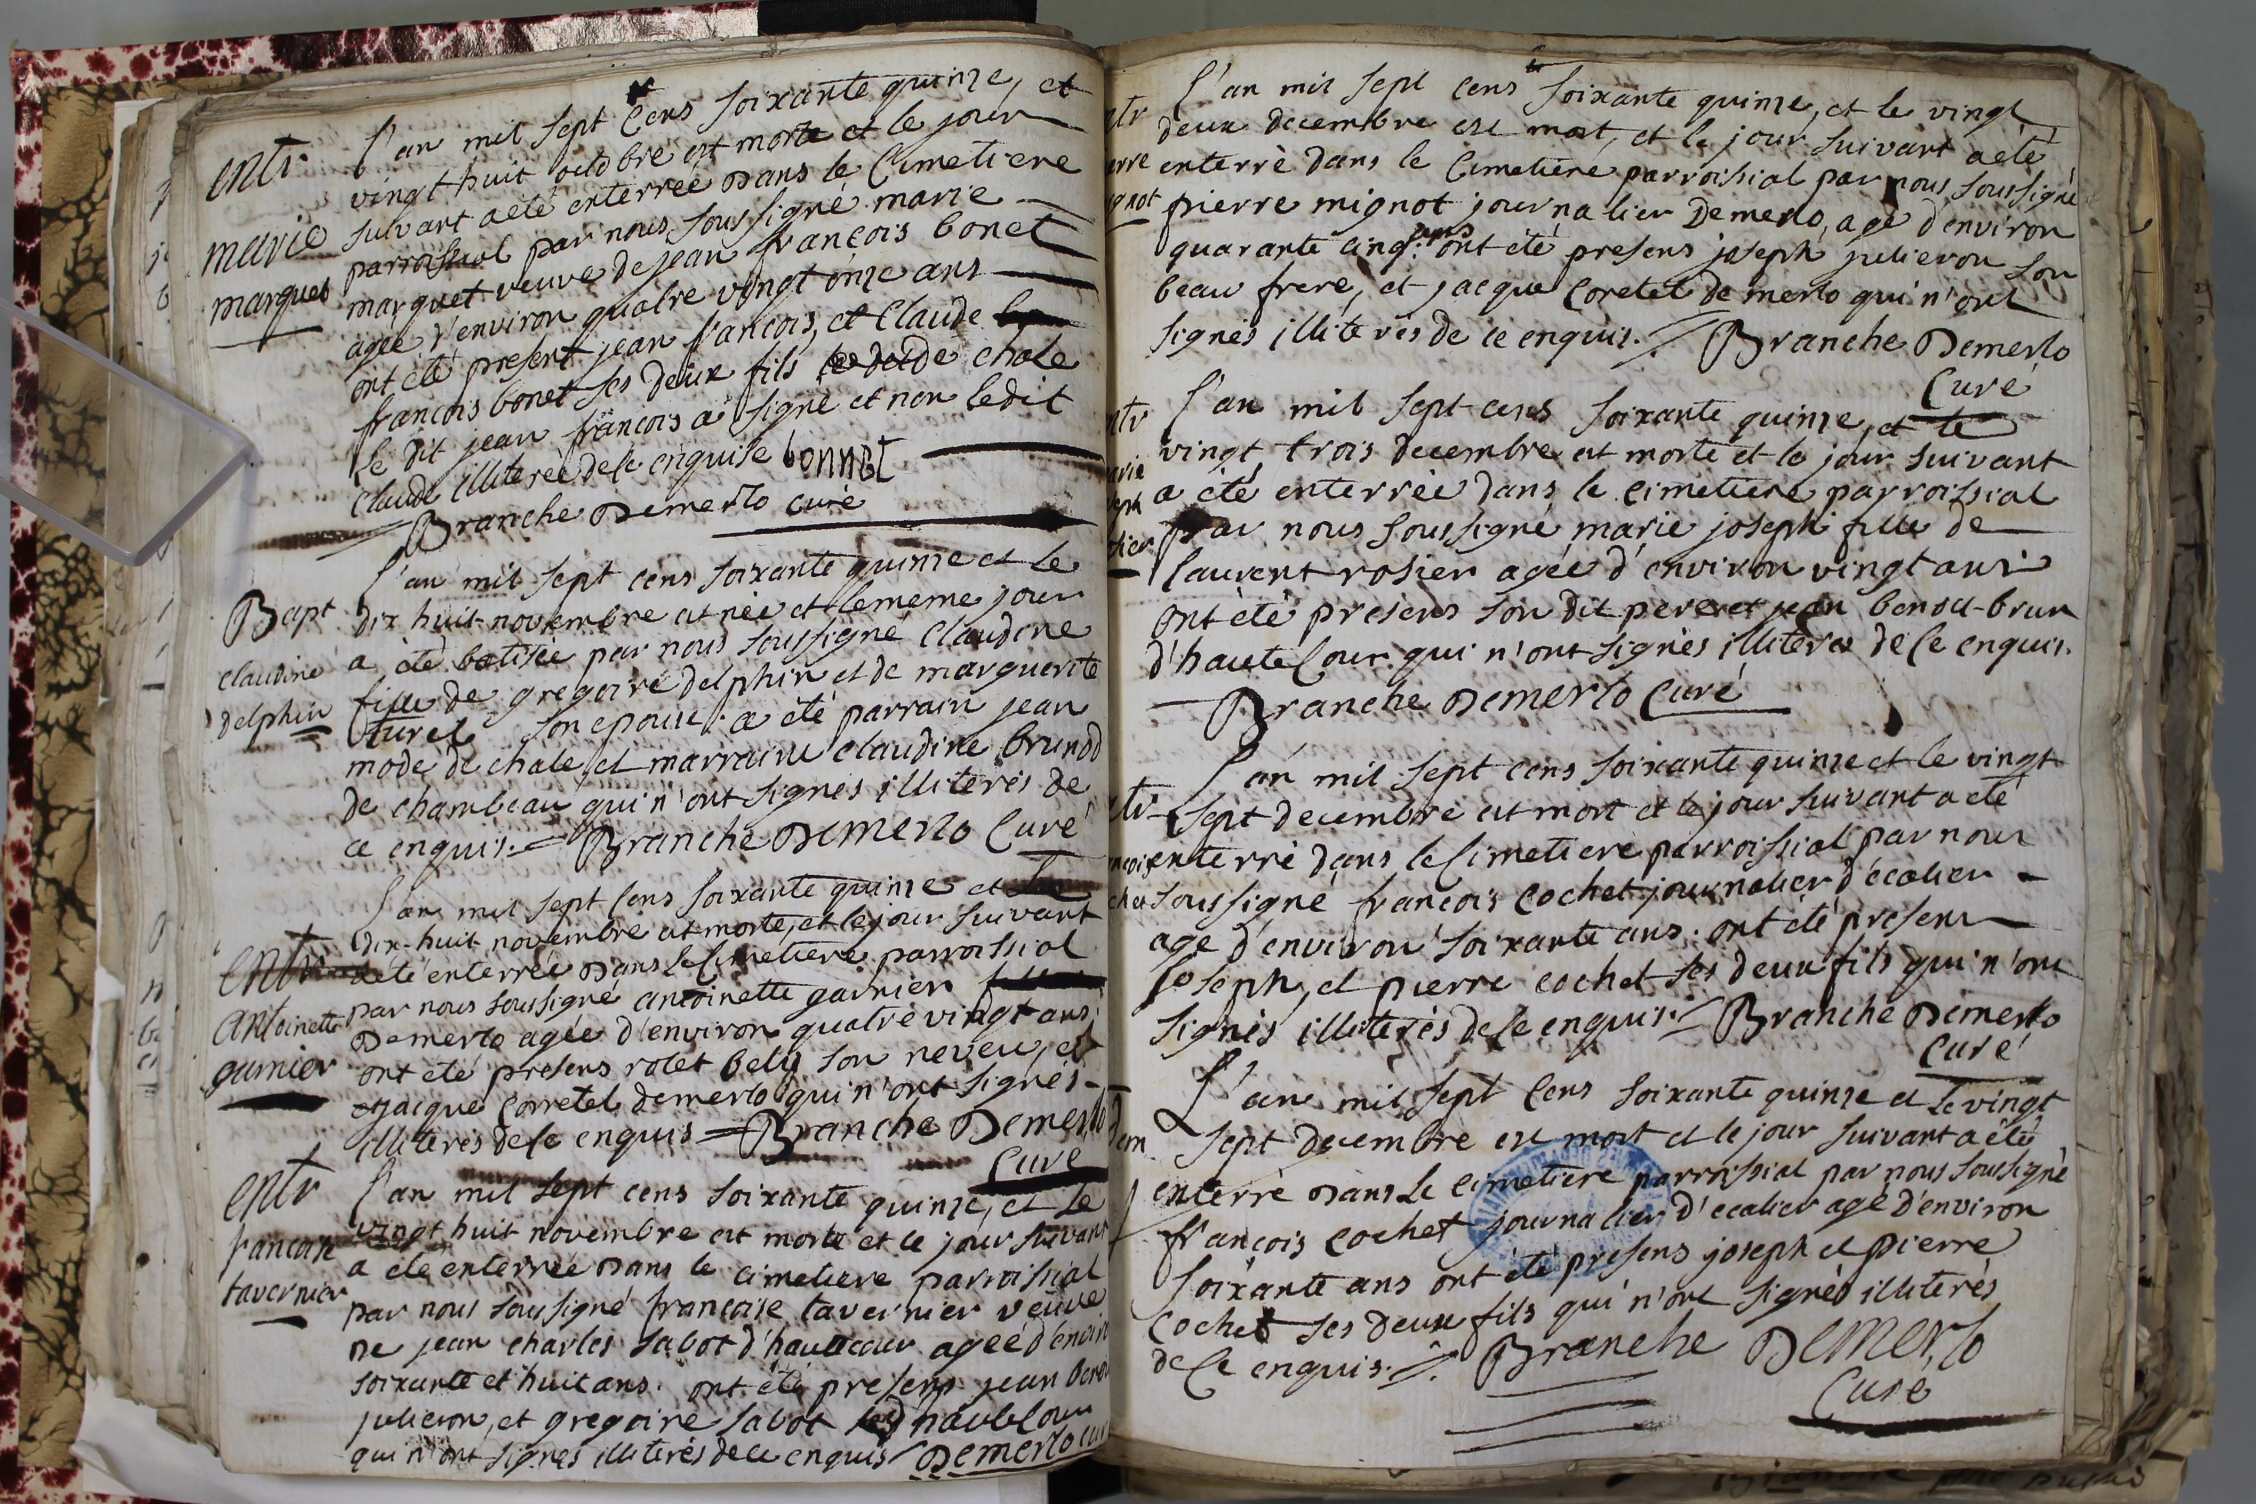 entr
marie
marguet
l'an mil sept cens soixante quinze, et
vingt huit octobre est morte et le jour
suivant a eté enterrée dans le Cimetiere
parroissial par nous soussigné marie
marguet veuve de jean françois bonet
agée d'environ quatre vingt onze ans
ont eté present jean francois, et Claude
francois bonet ses deux fils de chale
le dit jean françois a signé et non ledit
claude illiteré de ce enquise bonnet
Branche Demerlo curé
Bapt
claudine
delphin
l'an mil sept cens soixante quinze et le
dix huit novembre est née et le meme jour
a été batisée par nous soussigné claudine
fille de gregoire delphin et de marguerite
turel son epouse. a été parrain jean
mode de chale et marraine claudine brunod
de chambeau qui n'ont signés illiterés de
ce enquis. = Branche Demerlo Curé
entr
antoinette
garnier
l'an mil sept cens soixante quinze et
dix-huit novembre est morte, et le jour suivant
a eté enterrée dans le Cimetiere parroissial
par nous soussigné antoinette garnier
Demerlo agée d'environ quatre vingt ans;
ont eté presens rolet bely son neveu, et
jacque corretel demerlo qui n'ont signés
illiterés de ce enquis = Branche Demerlo
Curé
entr
francoise
tavernier
l'an mil sept cens soixante quinze, et le
vingt huit novembre est morte et le jour suivant
a ete enterrée dans le cimetiere parroissial
par nous soussigné françoise tavernier veuve
de jean charles sabot d'hautecour agée d'environ
soixante et huit ans. ont été presens jean benoi
julieron, et gregoire sabot d'hautecour
qui n'ont signés illiterés de ce enquis Demerlo cur
ntr
erre
gnot
l'an mil sept cens soixante quinze, et le vingt
deux decembre est mort, et le jour suivant a eté
enterré dans le Cimetiere parroissial par nous soussigné
pierre mignot journalier Demerlo, agé d'environ
quarante cinq ans. ont été presens joseph julieron son
beau frere, et jacque coretel de merlo qui n'ont
signés illiterés de ce enquis. Branche Demerlo
Curé
ntr
arie
seph
sier
l'an mil sept cens soixante quinze, et le
vingt trois decembre est morte et le jour suivant
a été enterrée dans le cimetiere parroissial
par nous soussigné marie joseph fille de
laurent rosier agée d'environ vingt ans
ont été presens son dit pere et jean benoit-brun
d'hautecour qui n'ont signés illiterés de ce enquis.
Branche Demerlo Curé
ntr
ncois
chet
l'an mil sept cens soixante quinze et le vingt
sept decembre est mort et le jour suivant a eté
enterré dans le Cimetiere parroissial par nous
soussigné francois cochet journalier d'écalier
agé d'environ soixante ans. ont été presens
joseph, et pierre cochet ses deux fils qui n'ont
signés illiterés de ce enquis. Branche Demerlo
Curé
L'an mil sept cens soixante quinze et le vingt
sept decembre est mort et le jour suivant a été
enterré dans le cimetiere parroissial par nous soussigné
françois cochet journalier d'ecalier agé d'environ
soixante ans ont été presens joseph et pierre
cochet ses deux fils qui n'ont signés illiterés
de ce enquis. Branche Demerlo
Curé